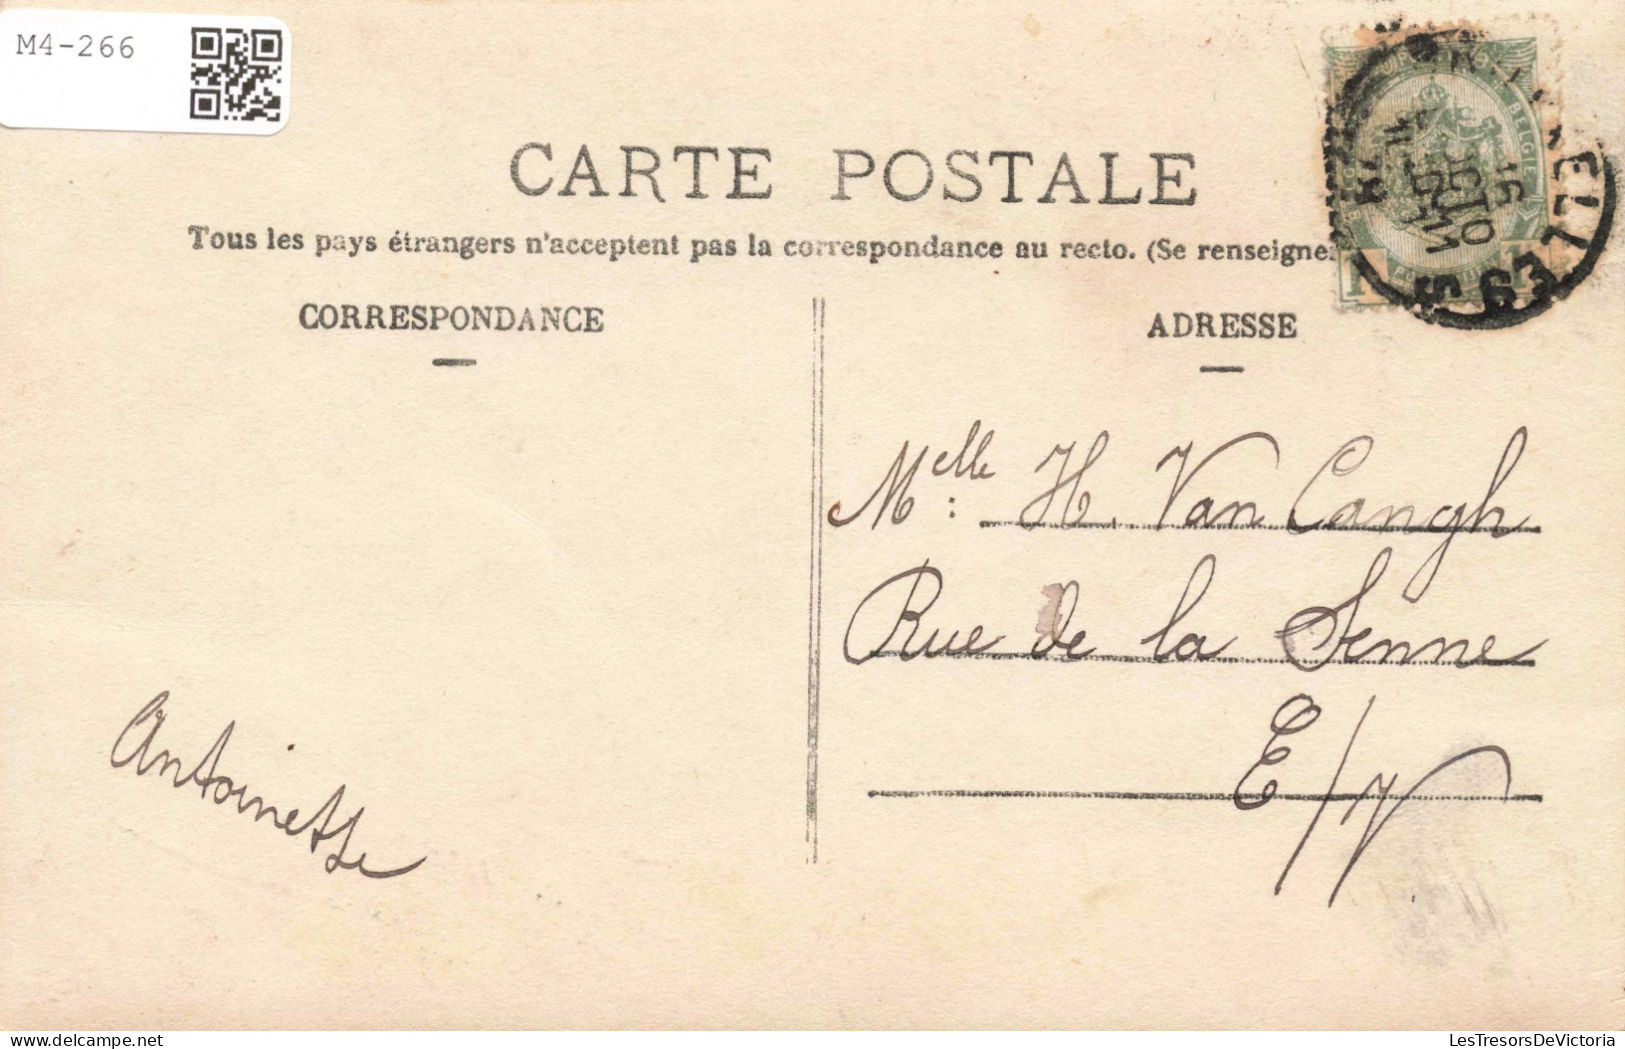 M4-266
CARTE POSTALE
Tous les pays étrangers n'acceptent pas la correspondance au recto. (Se renseigner
CORRESPONDANCE
ADRESSE
BRUXELLES 5
16 OCTO
BELGIE
Melle: H. Van Cangh
Rue de la Senne
E/V
Antoinette
LesTresorsDeVictoria
www.delcampe.net